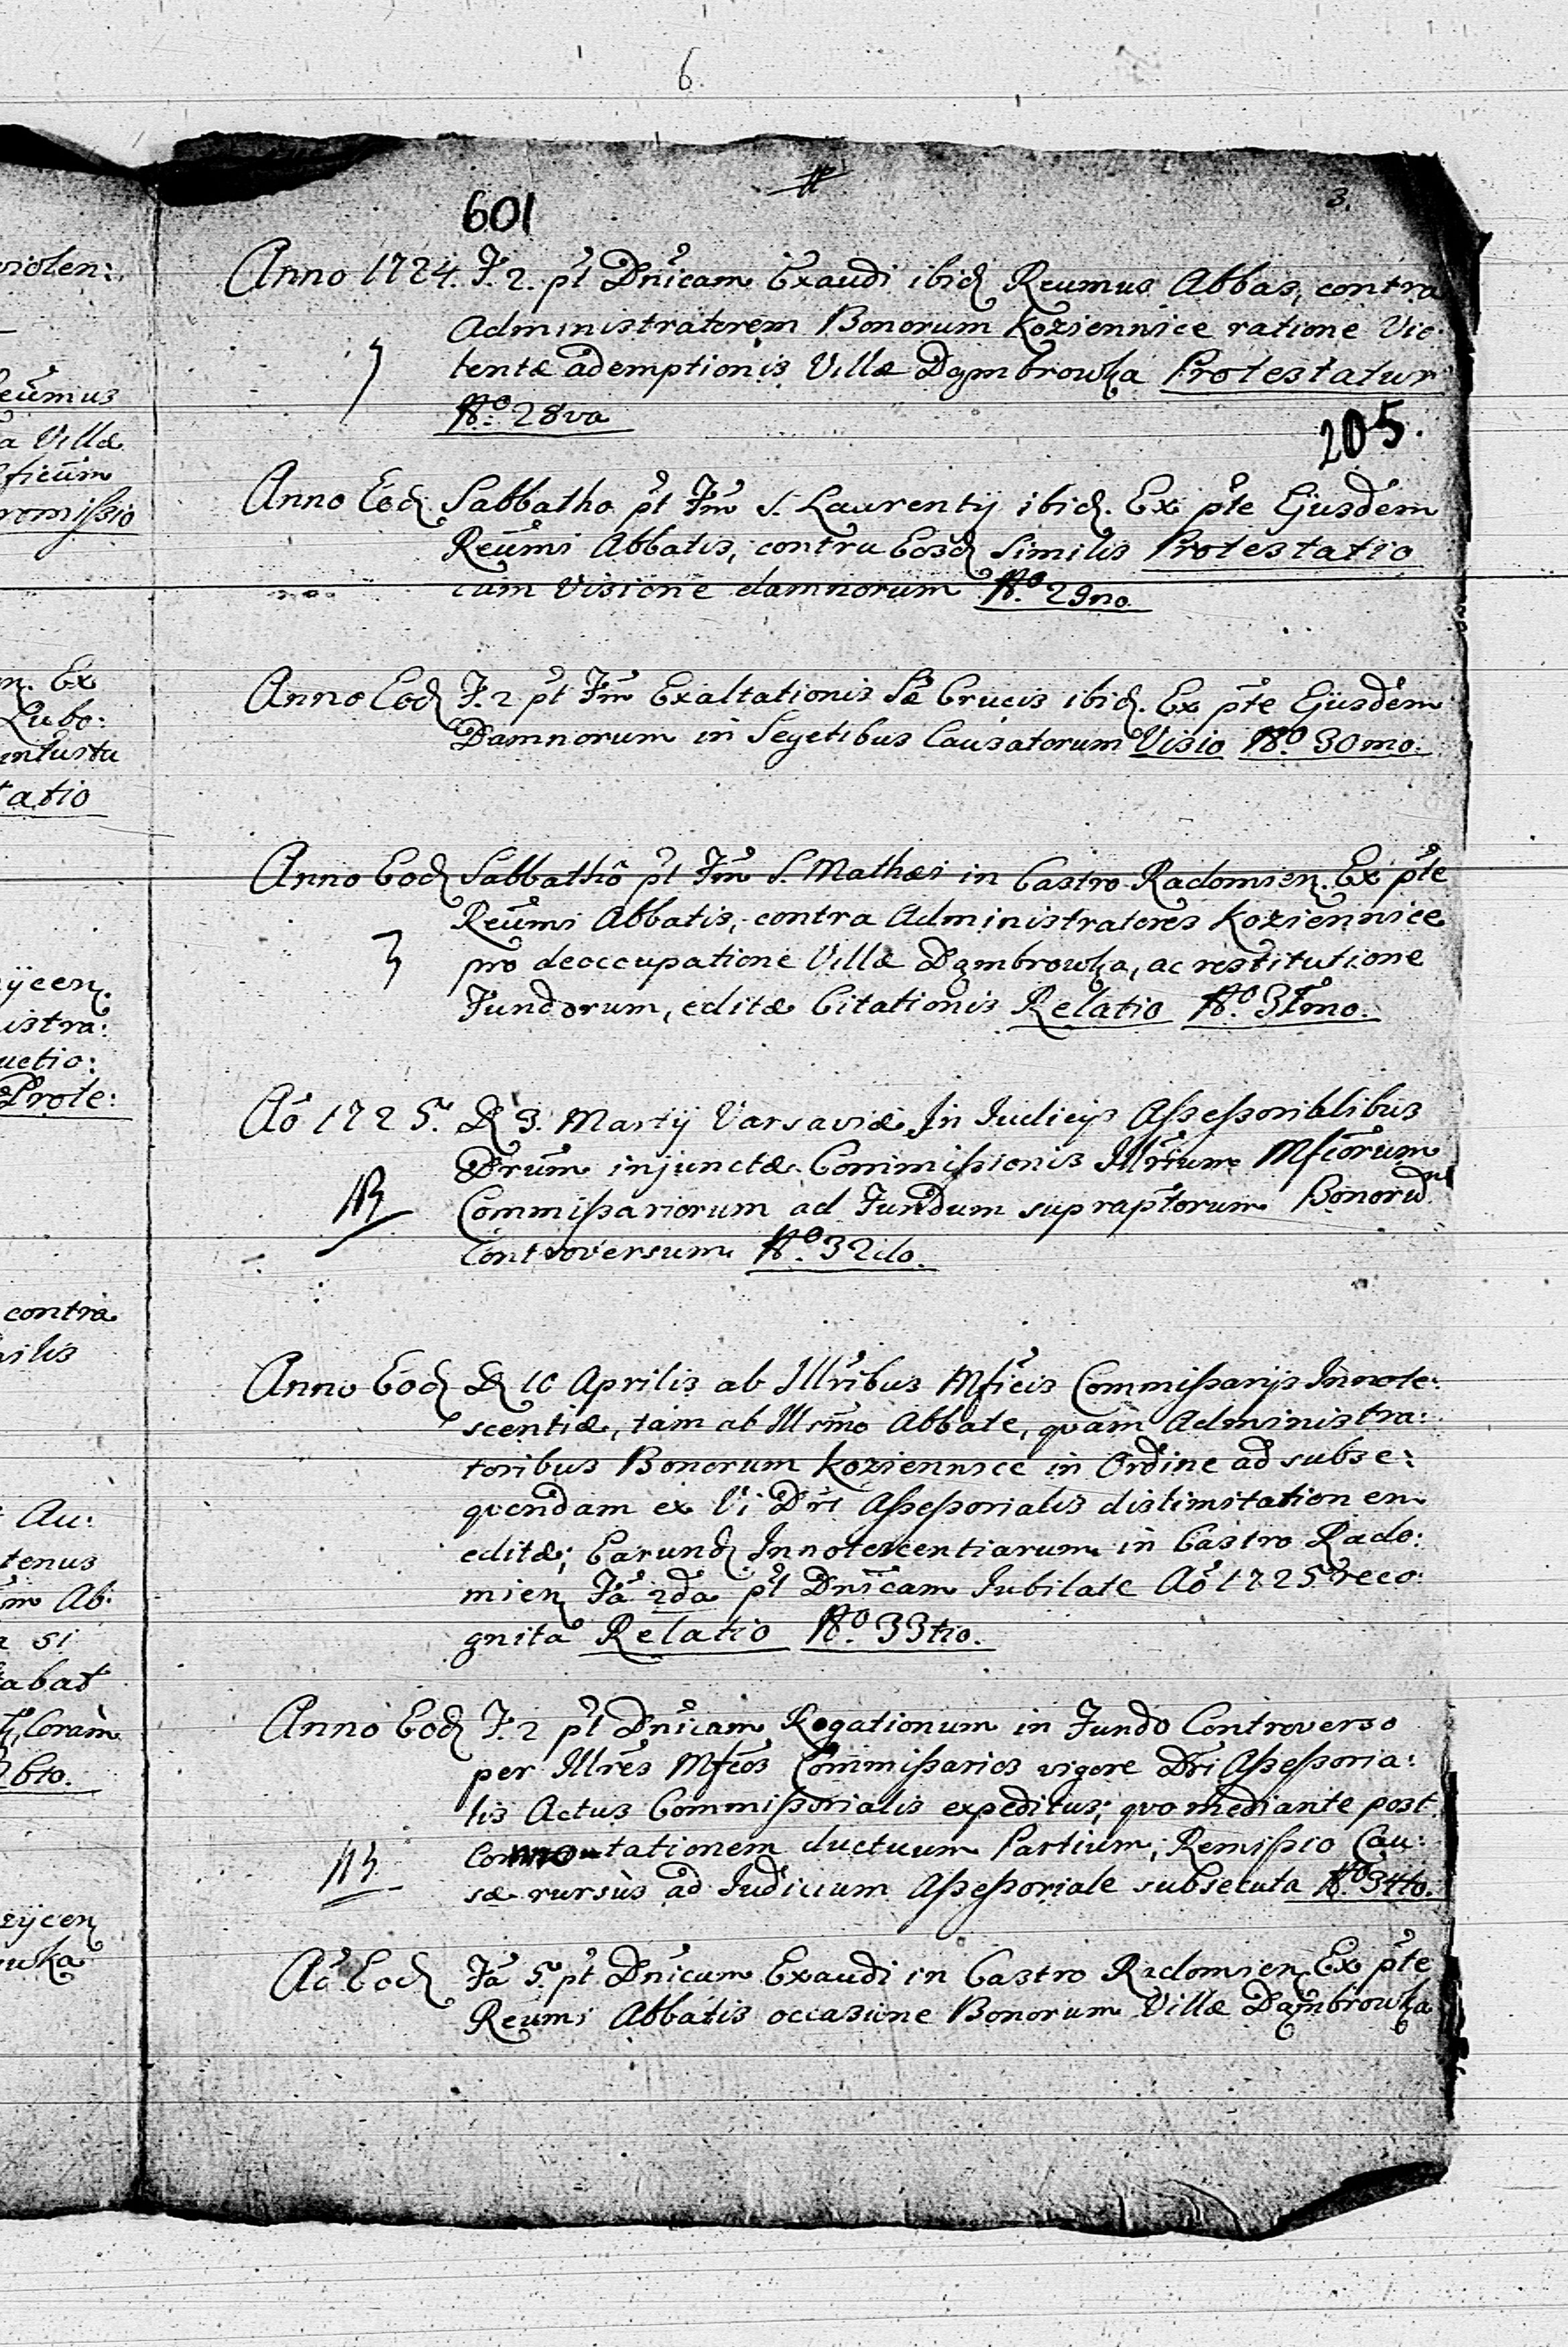 6.
3.
601
Anno 1724. F. 2. pt Dnicam Exaudi ibid Reumus Abbas, contra
Administratorem Bonorum Koziennice ratione Vio:
lentæ ademptionis Villæ Dąmbrowka Protestatur
No. 28va
205.
Anno Eod Sabbatho pt Fm S. Laurentij ibid. Ex pte Ejusdem
Reumi Abbatis, contra Eosd Similis Protestatio
cum Visione damnorum No. 29no.
Anno Eod F. 2 pt Fm Exaltationis Sæ Crucis ibid. Ex pte Ejusdem
Damnorum in Segetibus Causatorum Visio No. 30mo.
Anno Eod Sabbathô pt Fm S. Mathæi in Castro Radomien. Ex pte
Reumi Abbatis, contra Administratores Koziennice
pro deoccupatione Villæ Dąmbrowka, ac restitutione
Fundorum, editæ Citationis Relatio No. 31mo.
Aô 1725. D 3. Martij Varsaviæ In Iudicijs Assessorialibus
Drum injunctæ Commissionis Illrium Mficorum
NB Commissariorum ad Fundum supraptorum Bonorum
Controversum No. 32do.
Anno Eod D 10 Aprilis ab Illribus Mficis Commissarijs Innote:
scentiæ, tam ab Illsmo Abbate, quàm Administra:
toribus Bonorum Koziennice in Ordine ad subse:
quendam ex Vi Dri Assessorialis dislimitationem
editæ; Earund Innotescentiarum in Castro Rado:
mien Fa 2da pt Dnicam Iubilate Aô 1725 reco:
gnita Relatio No. 33tio.
Anno Eod F. 2 pt Dnicam Rogationum in Fundo Controverso
per Illres Mfcos Commissarios vigore Dri Assessoria:
lis Actus Commissorialis expeditus; quo mediante post
tationem ductuum Partium, Remissio Cau:
NB sæ rursùs ad Iudicium Assessoriale subsecuta No. 34to.
Aô Eod Fa 5. pt Dnicam Exaudi in Castro Radomien Ex pte
Reumi Abbatis occasione Bonorum Villæ Dąmbrowka